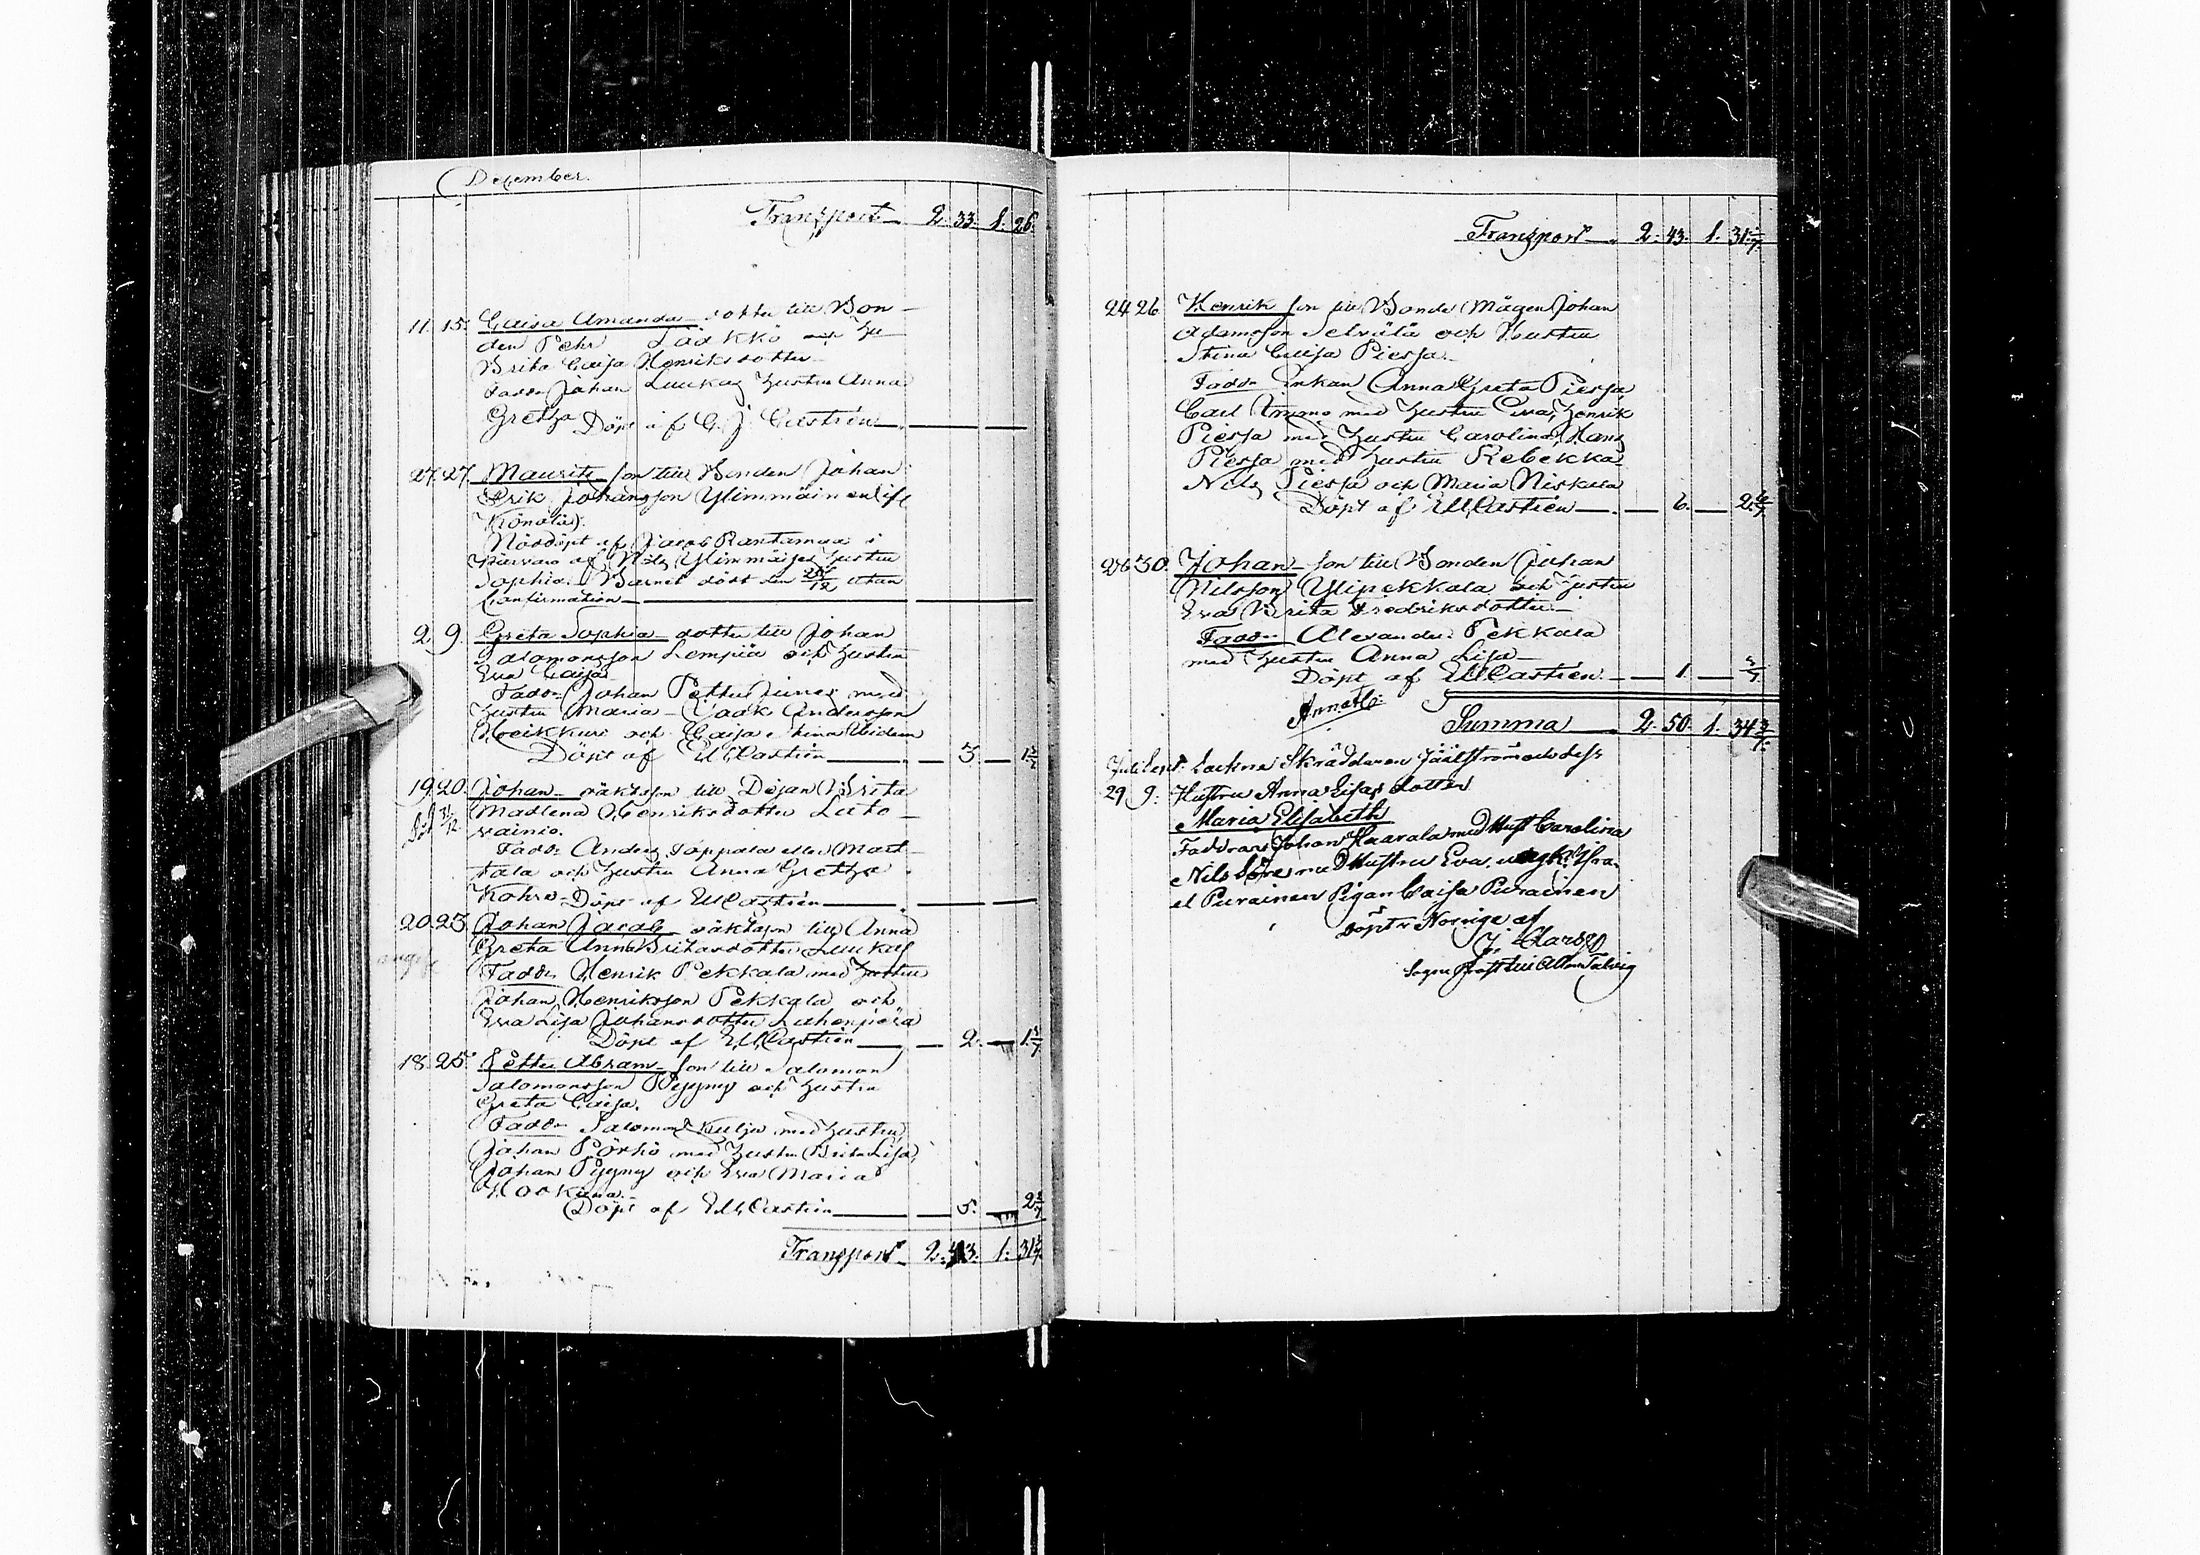 December.
Transport 2. 33. 1. 26.
11. 15. Caisa Amanda dotter till Bon-
den Pehr Laakkö och Hu
Brita Caisa Henriksdotter
Fadd. Johan Luukas hustru Anna
Gretha Döpt af C. J. Castrén
27. 27. Mauritz son till Bonden Johan
Erik Johansson Ylimmäinen
Könölä.
Nöddöpt af Jacob Rantamaa i
af Nils hustru
Sophia. Barnet dödt den 28/12 utan
Confirmation
2. 9. Greta Sophia dotter till Johan
Salomonsson Lempiä och hustru
Eva Caisa
Fadd. Johan Petter Junes med
hustru Maria Isak Andersson
och Caisa Stina ibidem
Döpt af E M Castrén 3. 1 5/7
19. 20. Johan oäkta son till Dejan Brita
död 31/12 Madlena Henriksdotter Luto-
vainio.
Fadd. Anders Joppala eller Mart-
tala och hustru Anna Gretha
Döpt af E M Castrén
20. 25. Johan Jacob oäkta son till Anna
Greta Anna Britasdotter Luukas
Fadd. Henrik Pekkala med hustru
Johan Henriksson Pekkala och
Eva Lisa Johansdotter
Döpt af E M Castrén 2. 1 1/7
18. 25. Petter Abram son till Salomon
Salomonsson Pyyny och hustru
Greta Caisa.
Fadd. Salomon med hustru,
Johan Pörhö med hustru Brita Lisa,
Johan Pyyny och Eva Maria
Döpt af E M Castrén 5. 2 1/7
Transport 2. 43. 1. 31 5/7
Transport 2. 43. 1. 31 5/7
24 26. Henrik son till Bonde Mågen Johan
Adamsson Selvälä och Hustru
Stina Caisa Piessa.
Fadd. Enkan Anna Greta Piessa,
Carl med hustru Eva, Henrik
Piessa med hustru Carolina, Hans
Piessa med hustru Rebekka
Nils Piessa och Maria Niskala
Döpt af E M Castrén 6. 2 4/7
26. 30. Johan son till Bonden Johan
Nilsson Ylipekkala och hustru
Eva Brita Fredriksdotter
Fadd. Alexander Pekkala
med hustru Anna Lisa
Döpt af E M Castrén 1.
Anmärk: Summa 2. 50. 1. 34 3/7
Juli Sept. Sockne Skräddaren och dess
29 9. Hustru Anna Lisas dotter
Maria Elisabeth
Faddrar Johan Haarala med Hust Carolina
Nils med Hustru Eva, ungk. Isra-
el Puirainen Pigan Caisa Puirainen
döpt i Norrige af
J.
Sogne Præst till Talvig